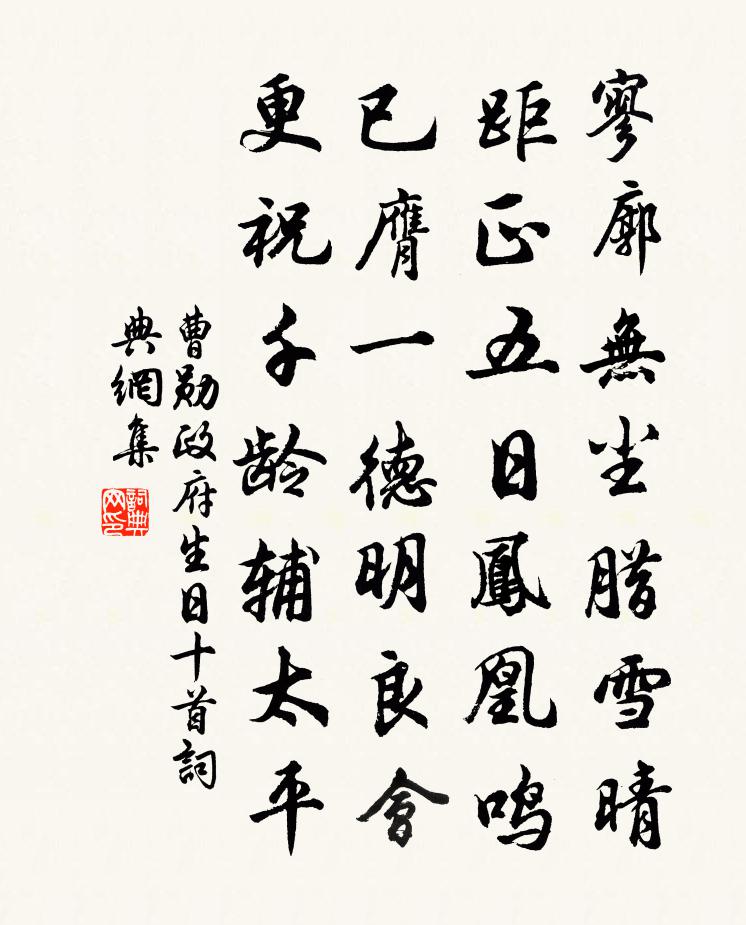 寥廓無尘腊雪晴
距正五日鳳凰鸣
已膺一德明良會
更祝千龄辅太平
曹勋政府生日十首詞
典網集
詞典
网印